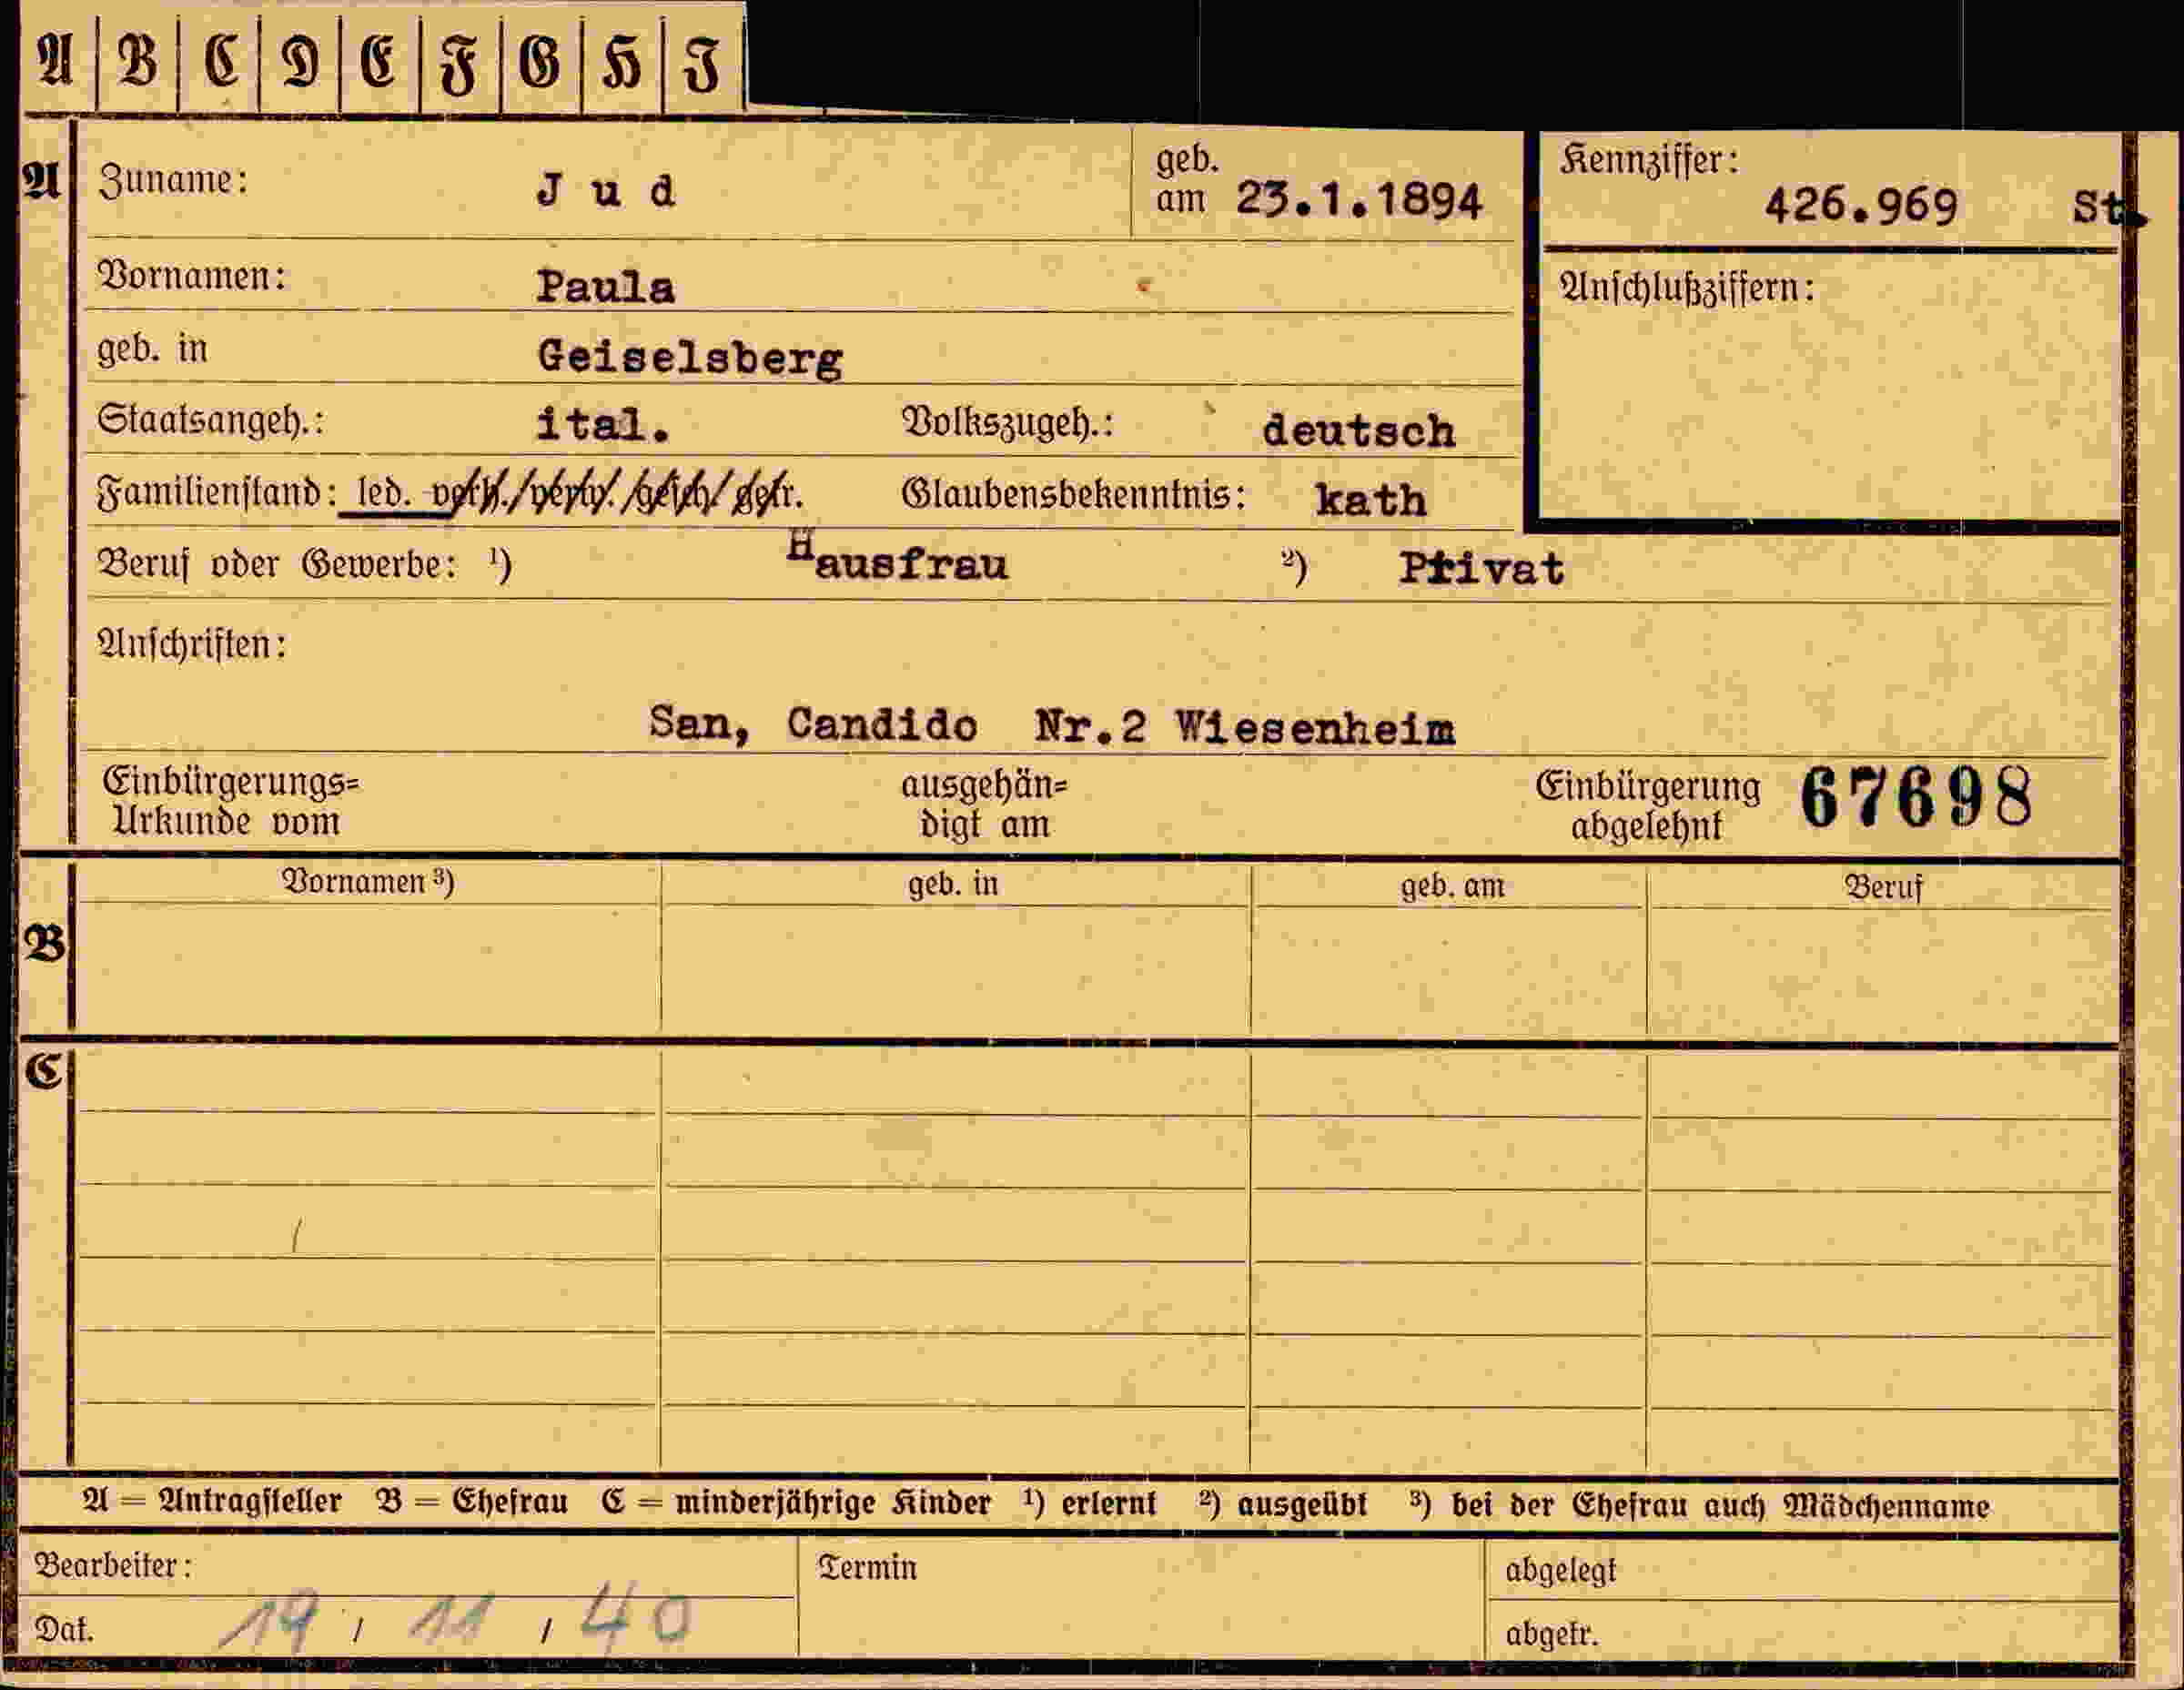 A B C D E F G H J
A Zuname: Jud geb. am 23.1.1894 Kennziffer: 426.969 St.
Vornamen: Paula Anschlußziffern:
geb. in Geiselsberg
Staatsangeh.: ital. Volkszugeh.: deutsch
Familienstand: led. verh./verw./gesch/getr. Glaubensbekenntnis: kath
Beruf oder Gewerbe: ¹) Hausfrau ²) Privat
Anschriften:
San, Candido Nr.2 Wiesenheim
Einbürgerungs= ausgehän= Einbürgerung 67698
Urkunde vom digt am abgelehnt
Vornamen ³) geb. in geb. am Beruf
B
C
A = Antragsteller B = Ehefrau C = minderjährige Kinder ¹) erlernt ²) ausgeübt ³) bei der Ehefrau auch Mädchenname
Bearbeiter: Termin abgelegt
Dat. 19 / 11 / 40 abgetr.